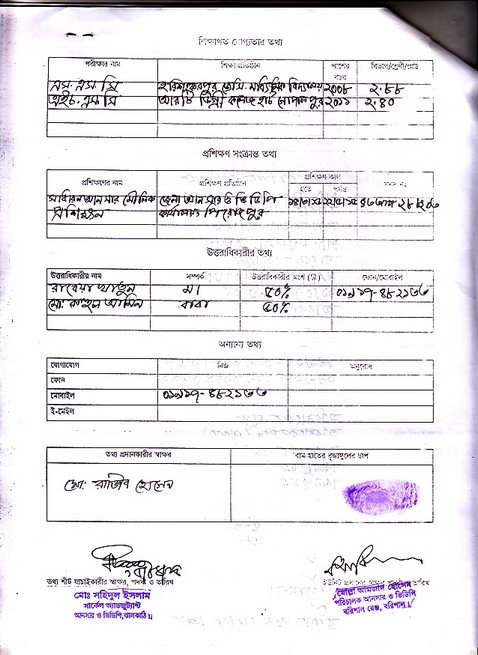 শিক্ষাগত যোগ্যতার তথ্য
পরীক্ষার নাম শিক্ষা প্রতিষ্ঠান পাশের বছর বিভাগ/শ্রেণী/গ্রেড
এস. এস সি মাধ্যমিক বিদ্যালয় ২০০৮ ২.৮৮
এইচ. এস সি ডিগ্রী কলেজ ২০১১ ২.৪০
প্রশিক্ষণ সংক্রান্ত তথ্য
প্রশিক্ষণের নাম প্রশিক্ষণ প্রতিষ্ঠান প্রশিক্ষণ কাল
হতে পর্যন্ত
সাধারন আনসার মৌলিক জেলা আনসার ও ভি ডি পি
কার্যালয় পিরোজপুর
উত্তরাধিকারীর তথ্য
উত্তরাধিকারীর নাম সম্পর্ক উত্তরাধিকারীর অংশ (%) ফোন/মোবাইল
রাবেয়া খাতুন মা ৫০%
মো: রুহুল আমিন বাবা ৫০%
অন্যান্য তথ্য
যোগাযোগ নিজ অনুরোধ
ফোন
মোবাইল
ই-মেইল
তথ্য প্রদানকারীর স্বাক্ষর বাম হাতের বৃদ্ধাঙ্গুলের ছাপ
মো: রাজিব হোসেন
তথ্য শীট যাচাইকারীর স্বাক্ষর, পদবী ও তারিখ
মোঃ সহিদুল ইসলাম
সার্কেল অ্যাডজুট্যান্ট
আনসার ও ভিডিপি, ঝালকাঠি।
মোল্লা আমজাদ হোসেন
পরিচালক আনসার ও ভিডিপি
বরিশাল রেঞ্জ, বরিশাল।